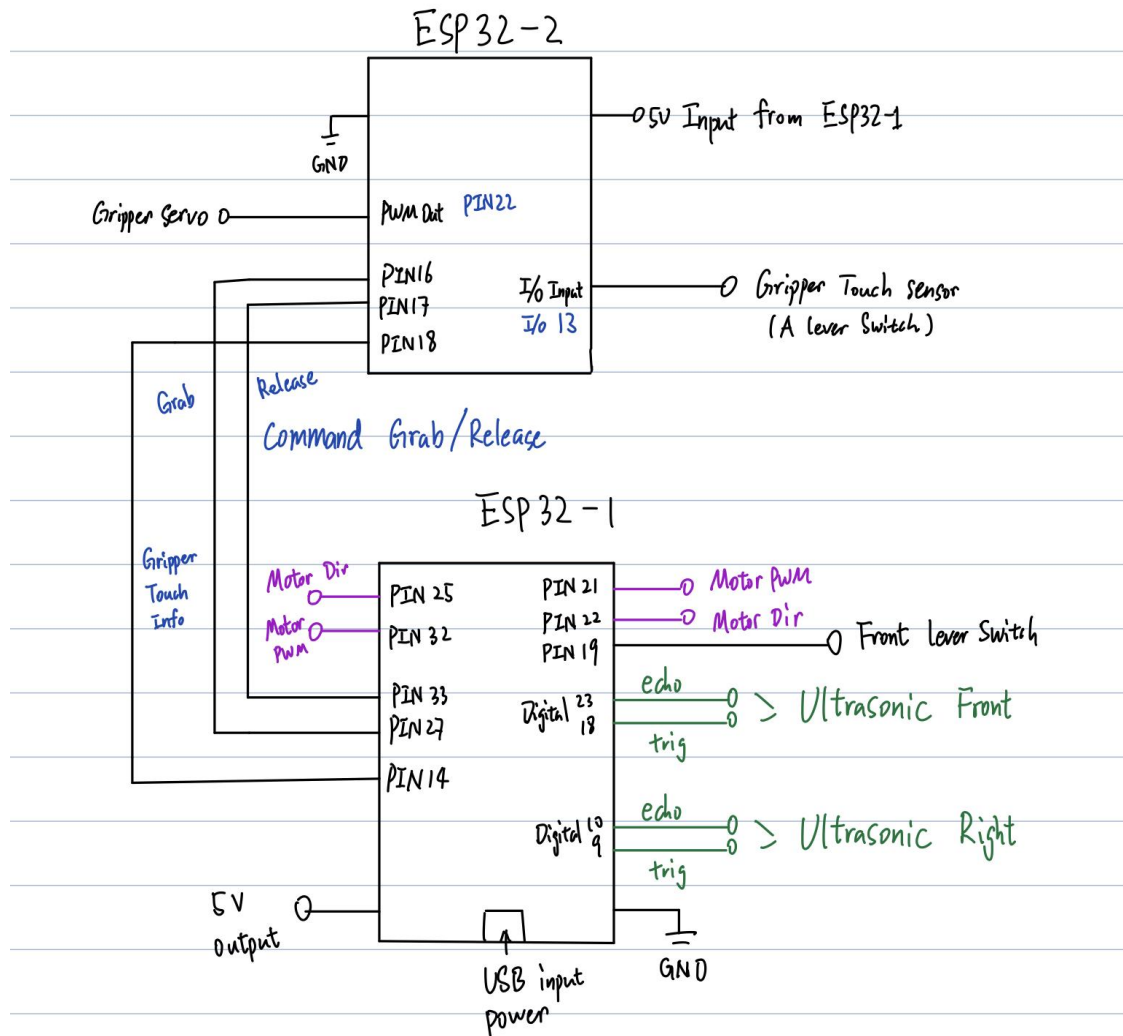 ESP32-2
5V Input from ESP32-1
GND
Gripper Servo
PWM Out PIN22
PIN16
PIN17
PIN18
I/O Input
I/O 13
Gripper Touch sensor
(A lever Switch)
Grab
Release
Command Grab/Release
ESP32-1
Gripper
Touch
Info
Motor Dir
Motor
PWM
PIN 25
PIN 32
PIN 33
PIN27
PIN14
PIN 21
PIN 22
PIN 19
Motor PWM
Motor Dir
Front Lever Switch
Digital 23
18
echo
trig
Ultrasonic Front
Digital 10
9
echo
trig
Ultrasonic Right
5V
output
USB input
power
GND